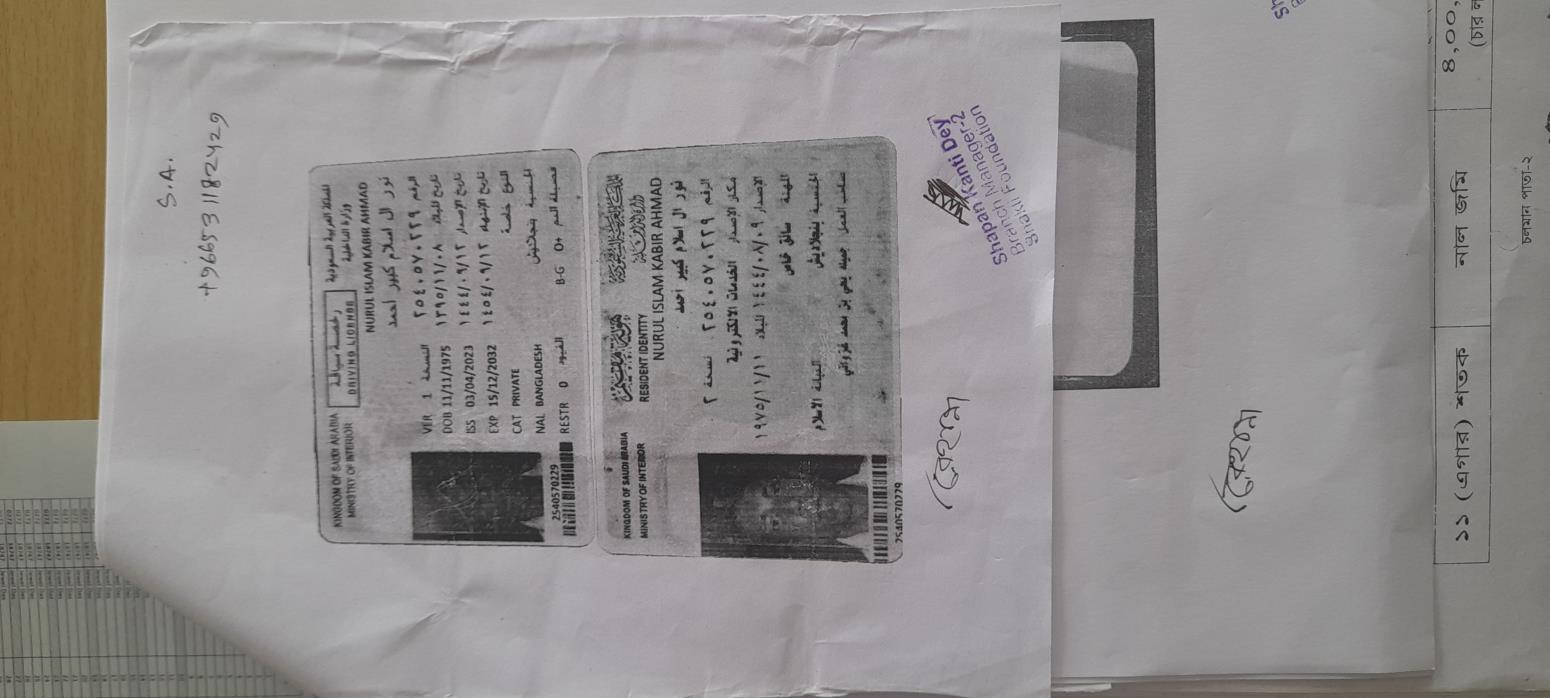 S.A.
+966531182429
KINGDOM OF SAUDI ARABIA
MINISTRY OF INTERIOR
رخصة سياقة
DRIVING LICENCE
المملكة العربية السعودية
وزارة الداخلية
NURUL ISLAM KABIR AHMAD
نور ال اسلام كبير احمد
VER 1 النسخة
الرقم ٢٥٤٠٥٧٠٢٢٩
DOB 11/11/1975
تاريخ الميلاد ١٣٩٥/١١/٠٨
ISS 03/04/2023
تاريخ الإصدار ١٤٤٤/٠٩/١٢
EXP 15/12/2032
تاريخ الإنتهاء ١٤٥٤/٠٩/١٣
CAT PRIVATE
النوع خاصة
NAL BANGLADESH
الجنسية بنجلاديش
RESTR 0 القيود
B-G O+ فصيلة الدم
2540570229
KINGDOM OF SAUDI ARABIA
MINISTRY OF INTERIOR
RESIDENT IDENTITY
NURUL ISLAM KABIR AHMAD
نور ال اسلام كبير احمد
الرقم ٢٥٤٠٥٧٠٢٢٩ نسخة ٢
مكان الإصدار الخدمات الالكترونية
الإصدار ١٤٤٤/٠٨/٠٩ الميلاد ١٩٧٥/١١/١١
المهنة سائق خاص
الجنسية بنجلاديش الديانة الاسلام
صاحب العمل
2540570229
Shapan Kanti Dey
Branch Manager-2
Shakti Foundation
১১ (এগার) শতক
নাল জমি
৪,০০,
(চার
চলমান পাতা-২